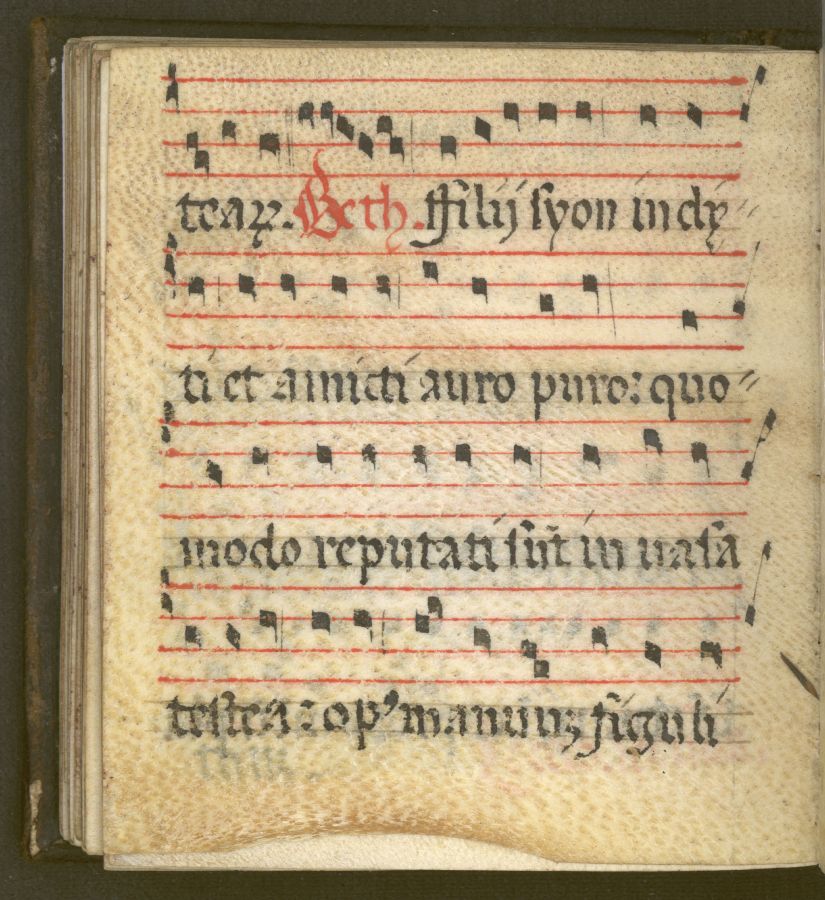 teaꝝ. Beth. ffilij syon incly⸗
ti et amicti auro puro: quo⸗
modo reputati sūt in uasa
testea: opꝰ manuuꝫ figuli